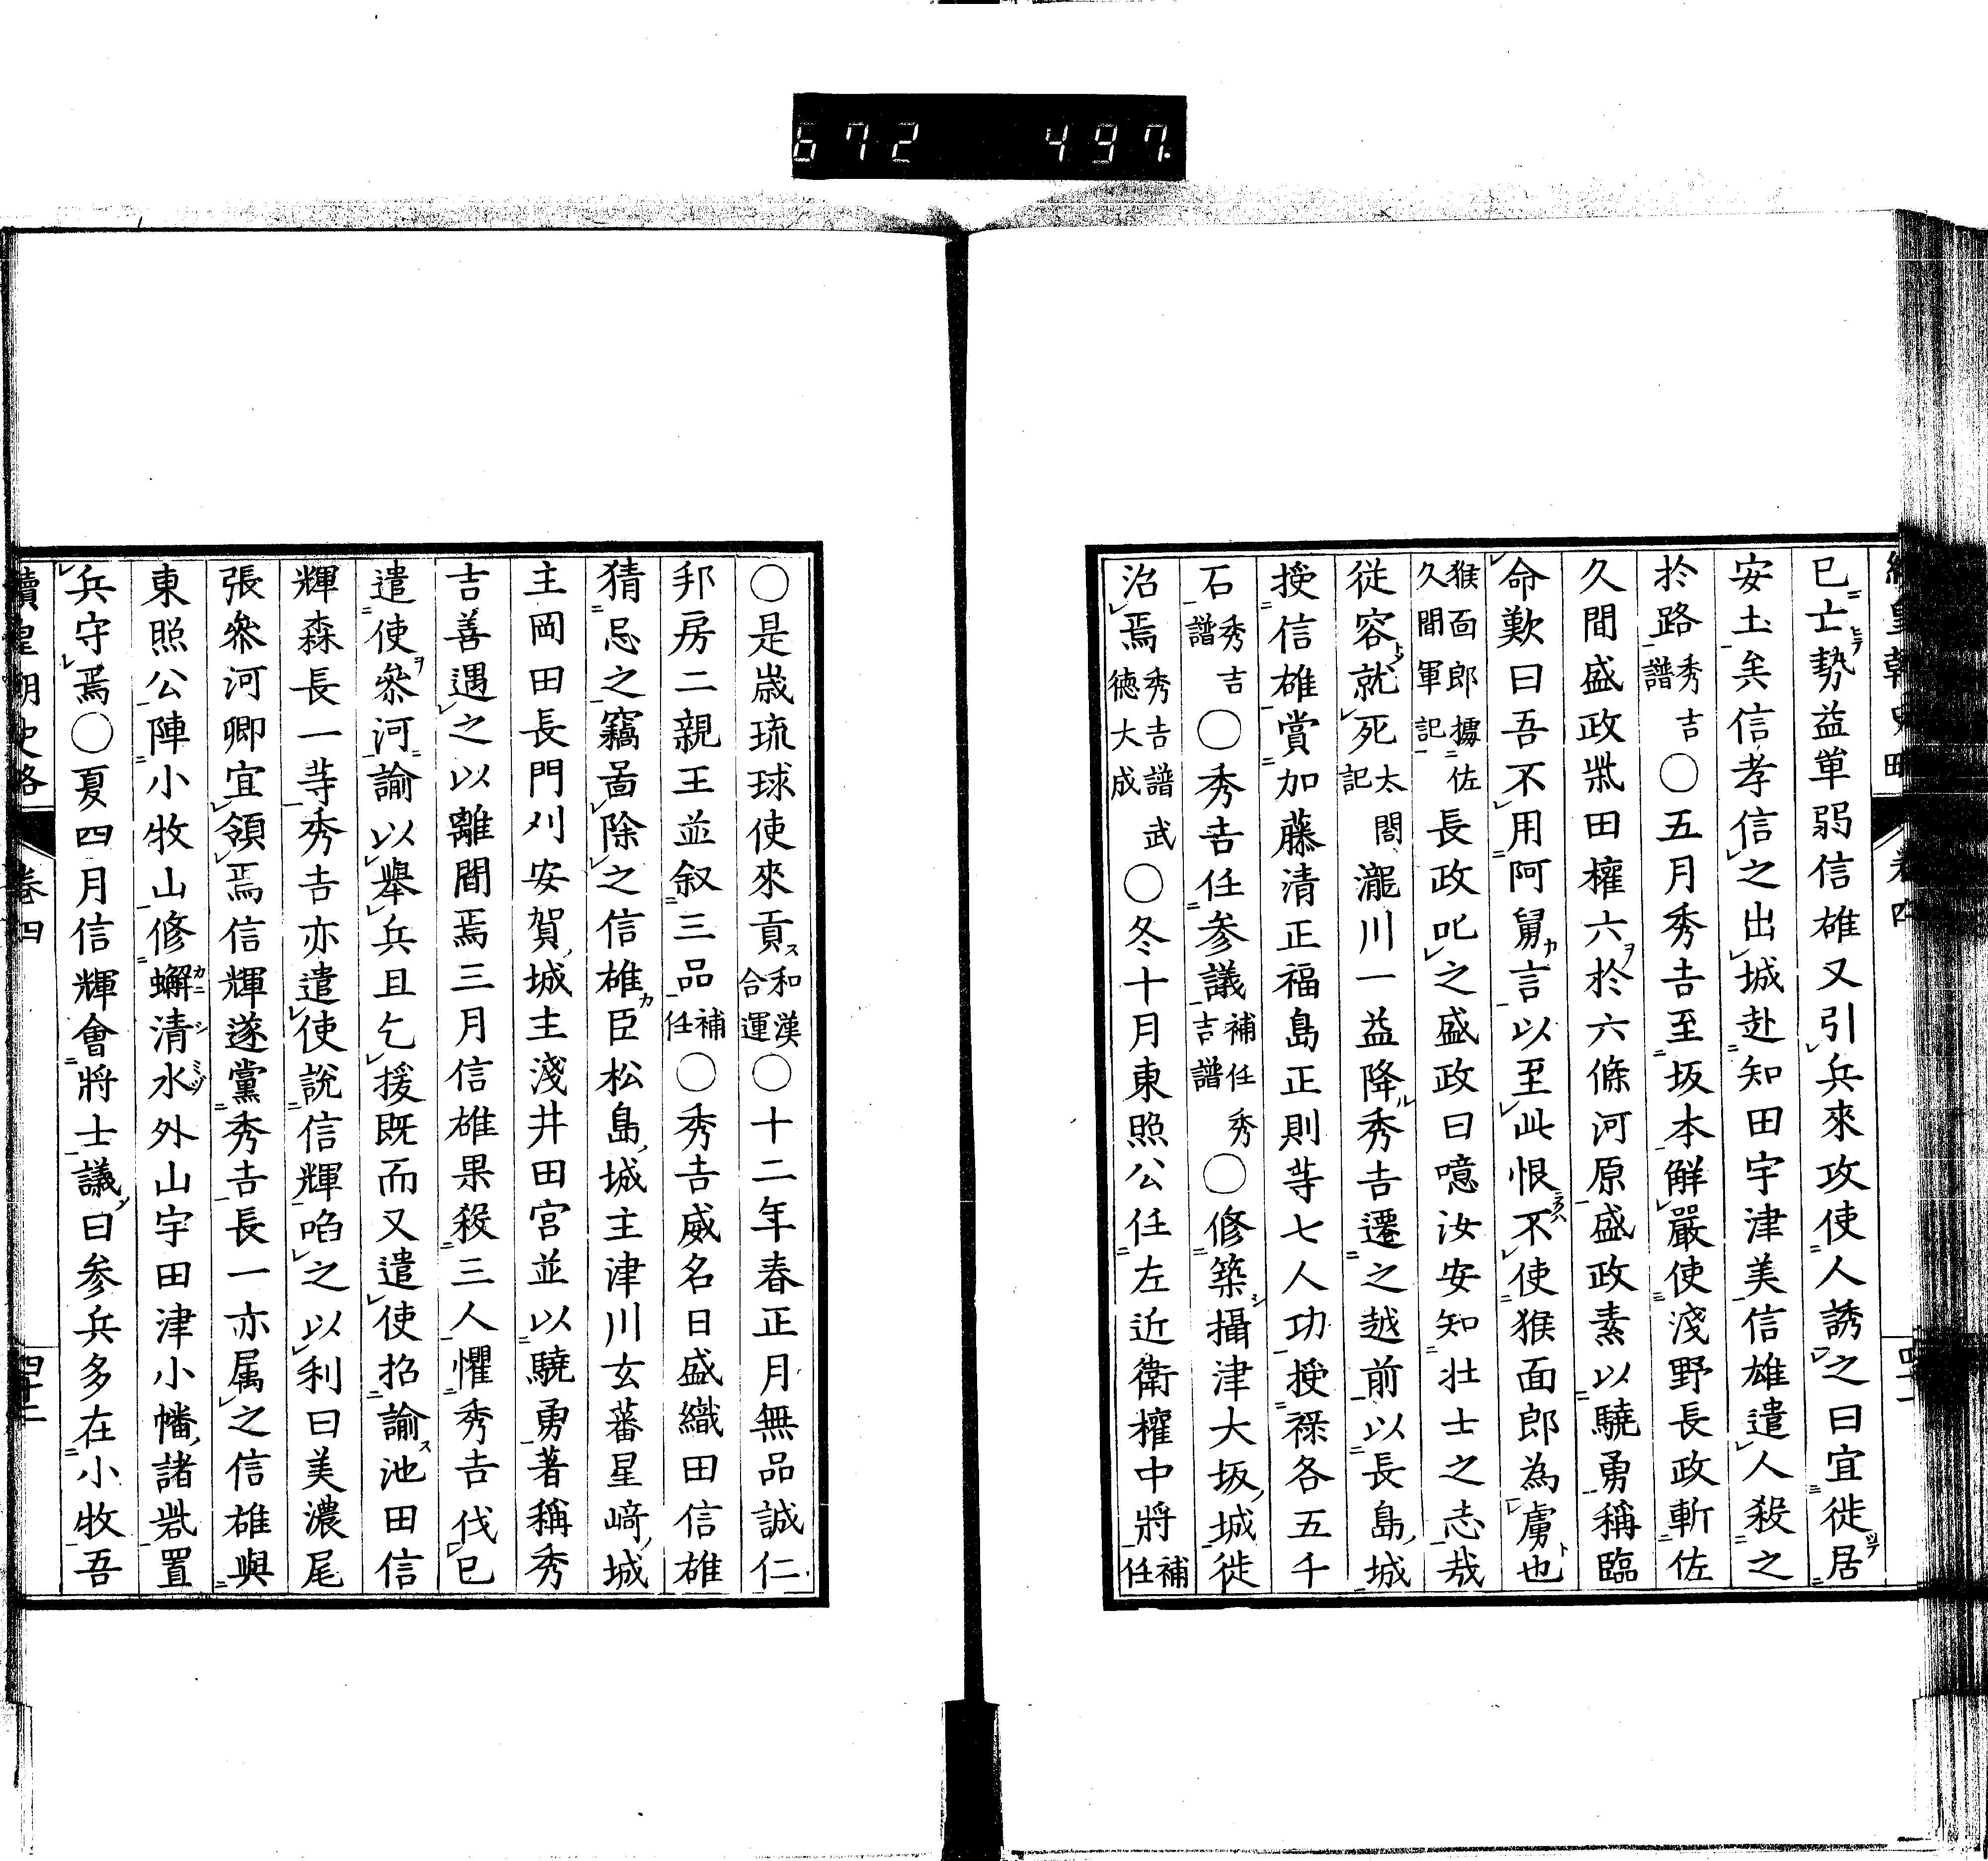 672 497.
已士勢益単弱信雄又引兵來攻使人誘之曰宜徙居
安土矣信孝信之出城赴知田宇津美信雄遣人殺之
於路秀吉譜〇五月秀吉至坂本解嚴使淺野長政斬佐
久間盛政柴田權六於六條河原盛政素以驍勇稱臨
命歎曰吾不用阿舅言以至此恨不使猴面郎為虜也
猴面郎據佐久間軍記長政叱之盛政曰噫汝安知壮士之志哉
従容就死太閤記瀧川一益降秀吉遷之越前以長島城
授信雄賞加藤清正福島正則等七人功授祿各五千
石秀吉譜〇秀吉任参議補任秀吉譜〇修築攝津大坂城徙
治焉秀吉譜武徳大成〇冬十月東照公任左近衛權中將補任
〇是歳琉球使來貢和漢合運〇十二年春正月無品誠仁
邦房二親王並叙三品補任〇秀吉威名日盛織田信雄
猜忌之竊啚除之信雄臣松島城主津川玄蕃星﨑城
主岡田長門刈安賀城主淺井田宮並以驍勇著稱秀
吉善遇之以離間焉三月信雄果殺三人懼秀吉伐已
遣使參河諭以舉兵且乞援既而又遣使招諭池田信
輝森長一等秀吉亦遣使說信輝啗之以利曰美濃尾
張參河卿宜領焉信輝遂黨秀吉長一亦属之信雄與
東照公陣小牧山修蠏清水外山宇田津小幡諸砦置
兵守焉〇夏四月信輝會將士議曰参兵多在小牧吾
續皇朝史略 卷四 四十二